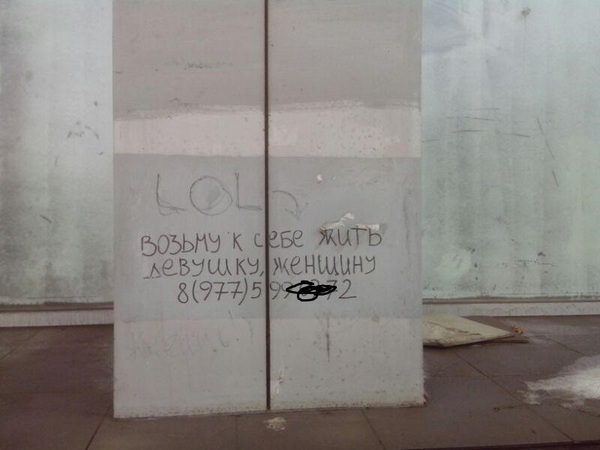 LOL
ВОЗЬМУ К СЕБЕ ЖИТЬ
ДЕВУШКУ, ЖЕНЩИНУ